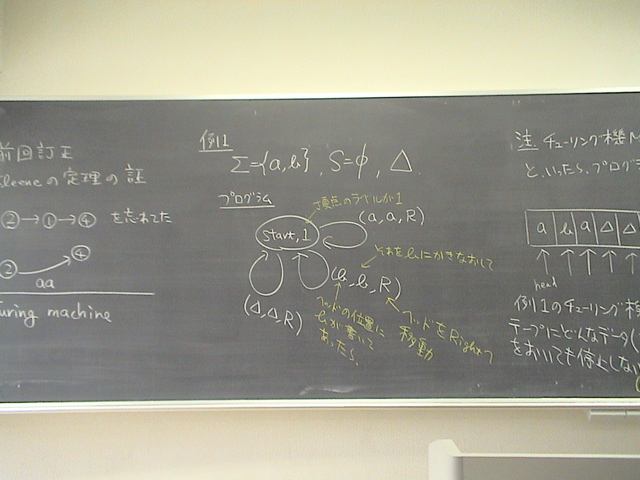 前回訂正
Kleeneの定理の証
②→①→④ を忘れてた
②→④
aa
Turing machine
例1
Σ={a,b}, S=φ, Δ
プログラム
頂点のラベルが1
start,1
(a,a,R)
(b,b,R)
(Δ,Δ,R)
それをbにかきなおして
ヘッドの位置に
bが書いて
あったら、
ヘッドをRightへ
移動
注 チューリング機M
と、いったら、プログラ
a b a Δ Δ
head
例1のチューリング機
テープにどんなデータ(
をおいても停止しない